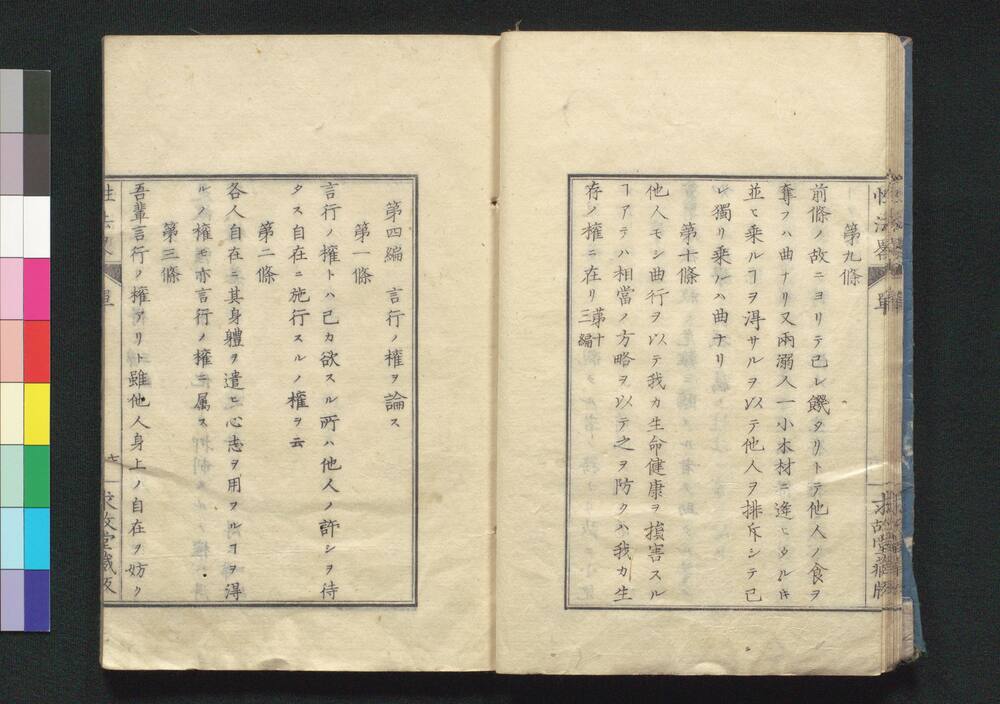 第九條
前條ノ故ニヨリテ己レ饑タリトテ他人ノ食ヲ
奪フハ曲ナリ又兩溺人一小木材ニ逢ヒタル𪜈
並ヒ乘ルヿヲ淂サルヲ以テ他人ヲ排斥シテ己
レ獨リ乘ルハ曲ナリ
第十條
他人モシ曲行ヲ以テ我カ生命健康ヲ損害スル
ヿアテハ相當ノ方略ヲ以テ之ヲ防クハ我カ生
存ノ權ニ在リ第十三編
第四編 言行ノ權ヲ論ス
第一條
言行ノ權トハ己カ欲スル所ハ他人ノ許シヲ待
タス自在ニ施行スルノ權ヲ云
第二條
各人自在ニ其身體ヲ遣ヒ心志ヲ用フルヿヲ淂
ルノ權モ亦言行ノ權ニ属ス
第三條
吾輩言行ノ權アリト雖他人身上ノ自在ヲ妨ク
性法畧 單
求故堂藏版